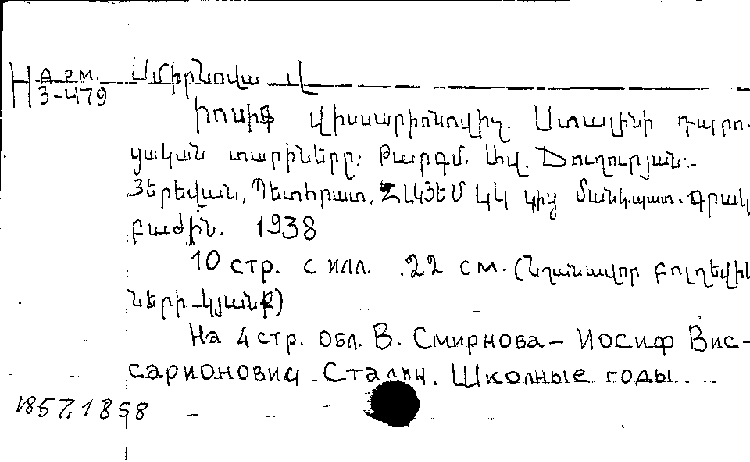 Н Арм. Սմիրնովա Վ
3-479
Իոսիֆ Վիսսարիոնովիչ Ստալինի դպրո-
ցական տարիները: Թարգմ. Սվ. Ծուղուրյան:-
Յերեվան, Պետհրատ, ՀԼԿՅԵՄ ԿԿ կից մանկպատ. գրակ
բաժին. 1938
10 стр. с илл. 22 см. (Նշանավոր բոլշեվիկ
ների կյանք)
На 4 стр. обл. В. Смирнова - Иосиф Вис-
сарионович Сталин. Школные годы.
1857.1858